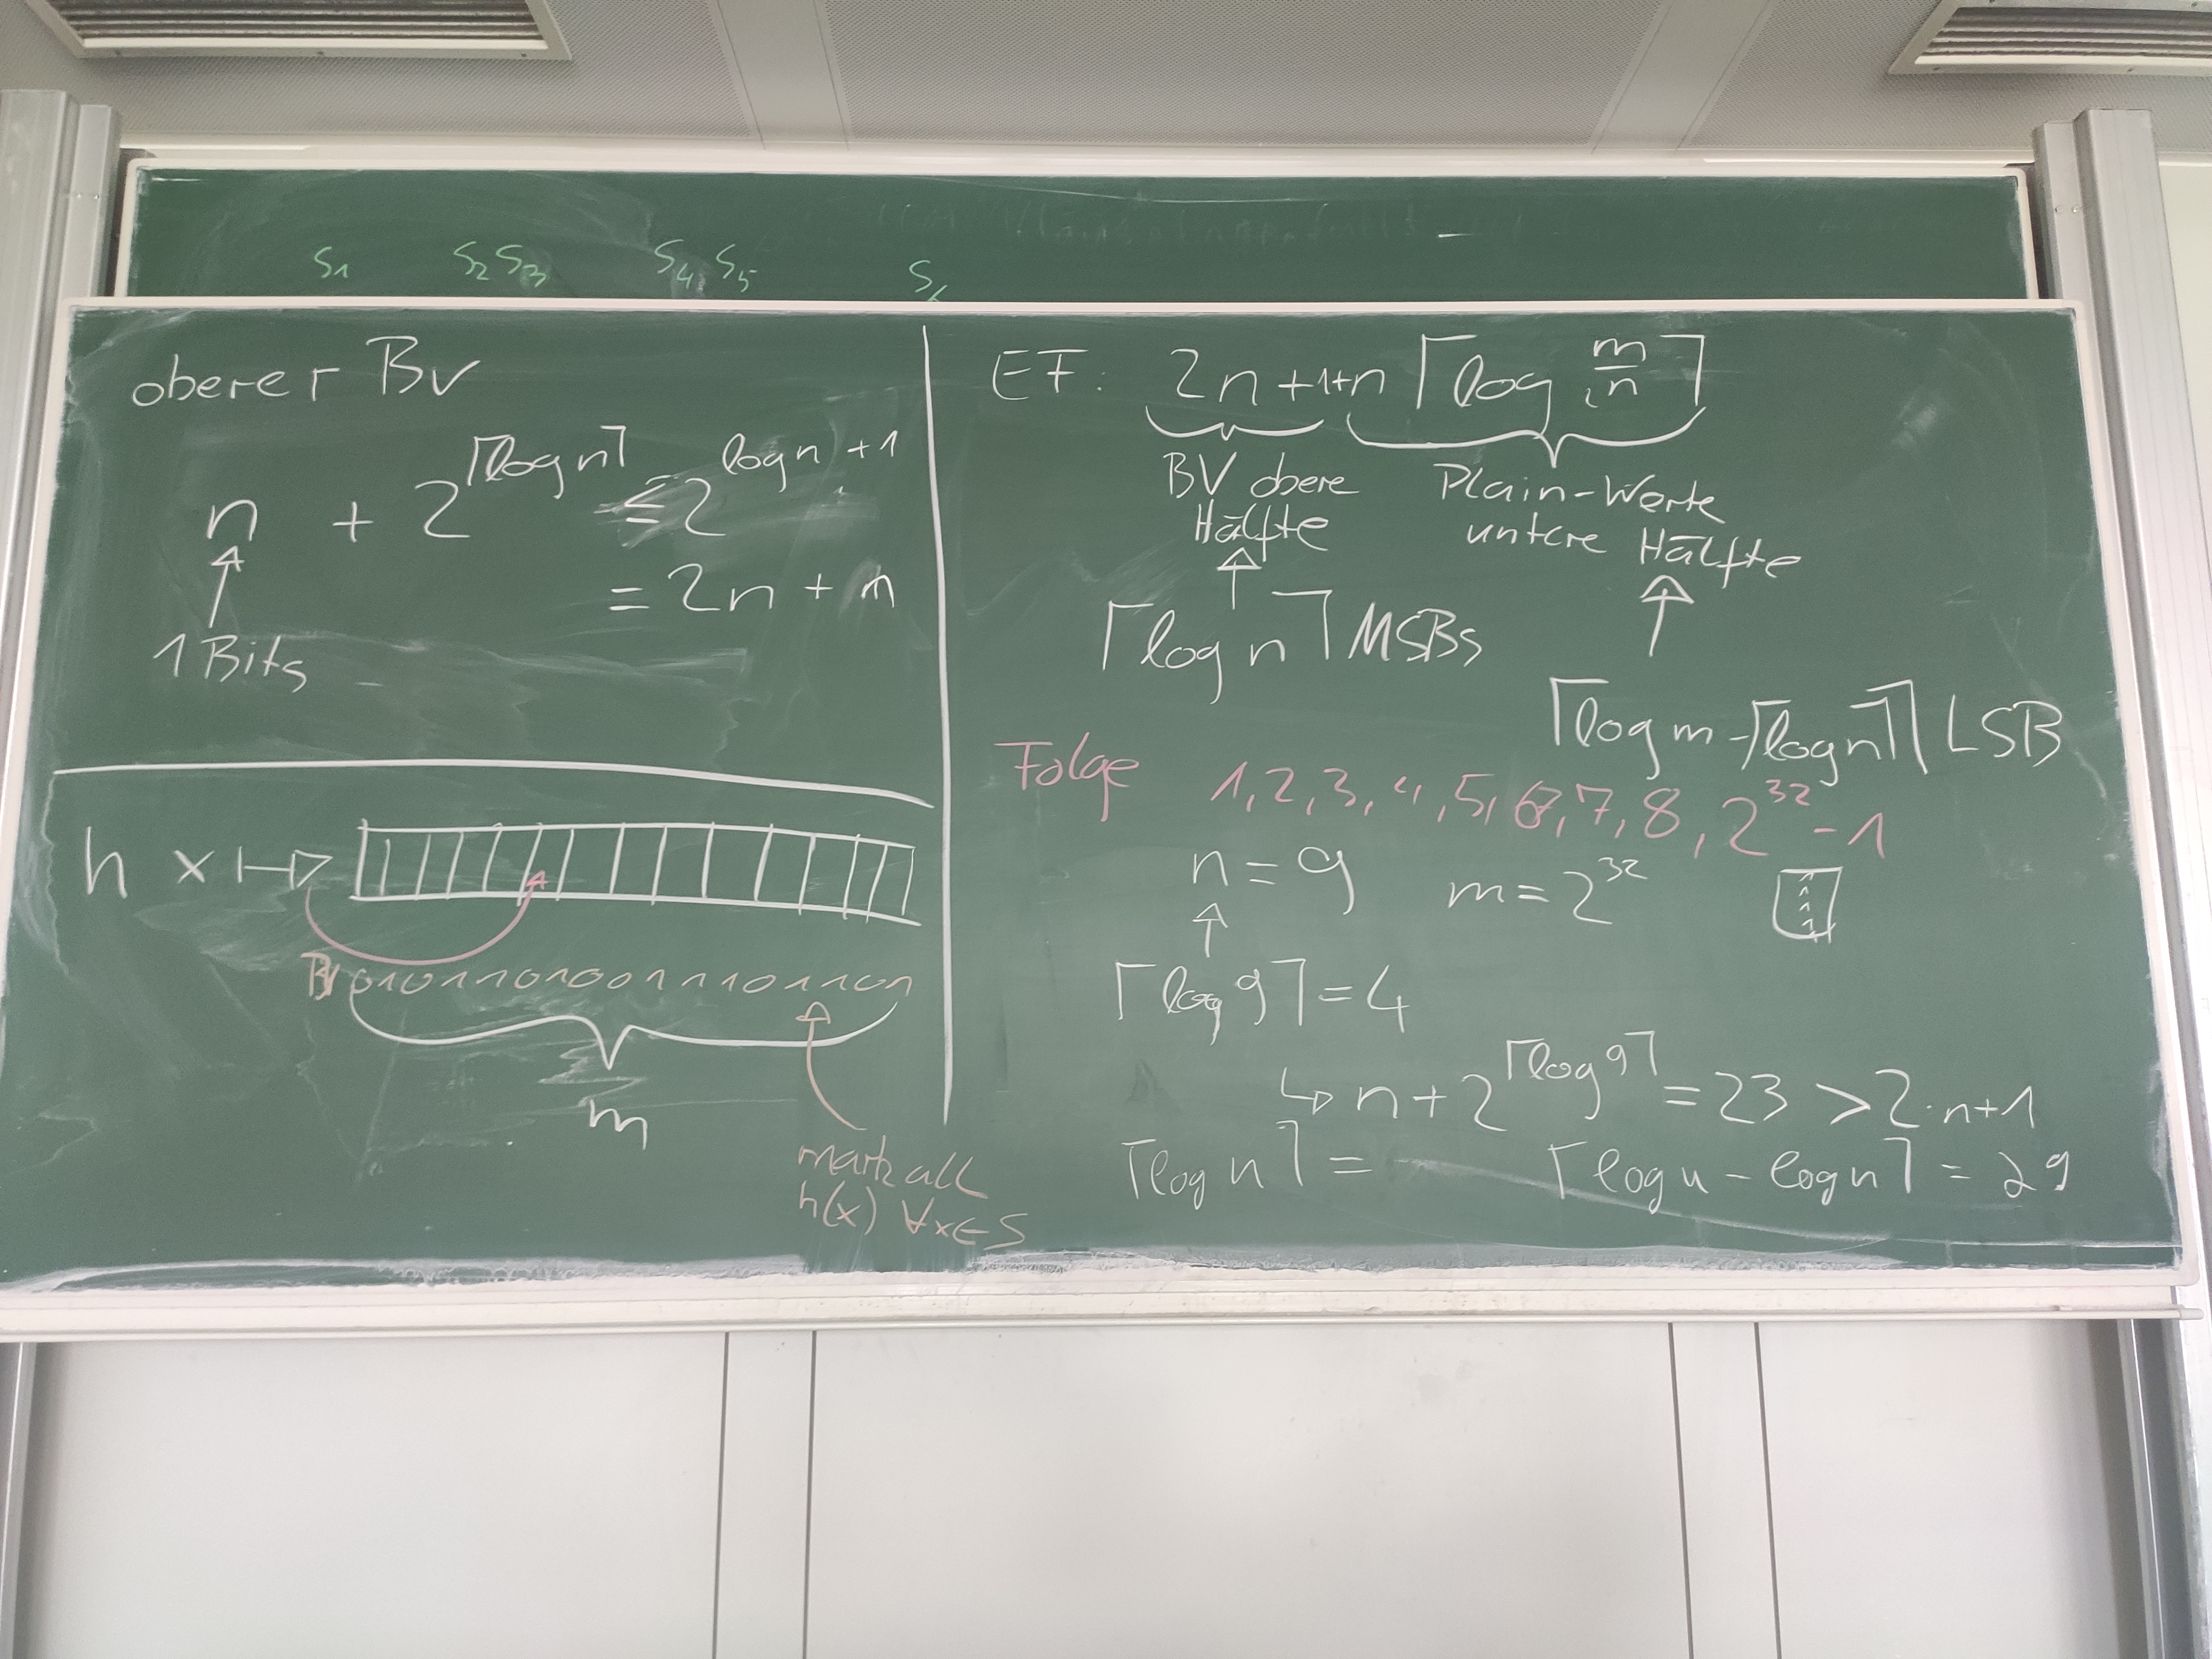 S1 S2 S3 S4 S5 S6
oberer BV
n + 2^⌈log n⌉ ≤ 2^log n + 1
= 2n + n
1 Bits
h x ↦
BV 010110100111011101
m
mark all
h(x) ∀x∈S
EF: 2n+1+n⌈log m/n⌉
BV obere
Hälfte
Plain-Werte
untere Hälfte
⌈log n⌉ MSBs
⌈log m - ⌈log n⌉⌉ LSB
Folge 1, 2, 3, 4, 5, 6, 7, 8, 2^32 - 1
n = 9 m = 2^32
⌈log 9⌉ = 4
↳ n + 2^⌈log 9⌉ = 23 > 2·n+1
⌈log n⌉ = ⌈log u - log n⌉ = 29